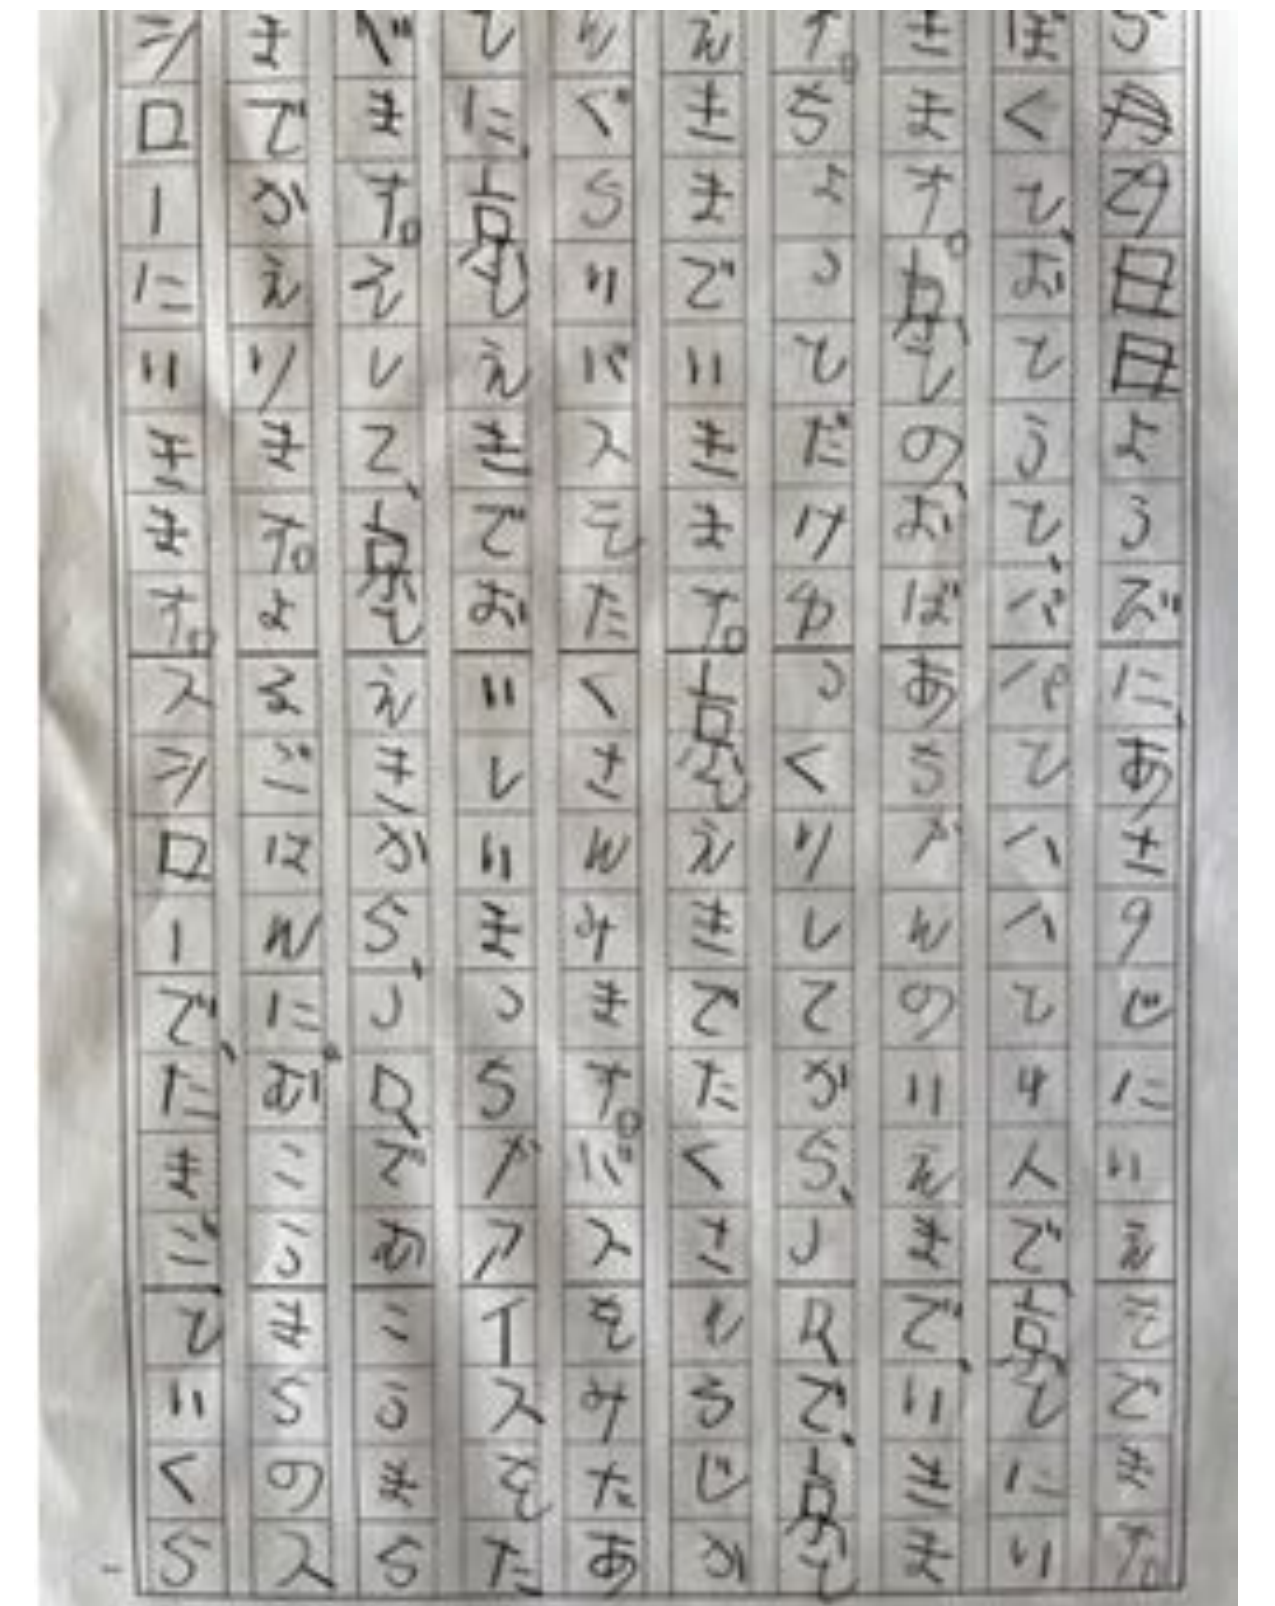 5月29日日ようびに、あさ9じにいえをでます。
ぼくと、おとうと、パパとハハと4人で、京とにい
きます。京との、おばあちゃんのいえまで、いきま
す。ちょっとだけゆっくりしてから、JRで、京と
えきまでいきます。京とえきでたくさん3じか
んぐらいバスをたくさんみます。バスをみたあ
とに、京とえきでおいしいまっちゃアイスをた
べます。そして、京とえきから、JRでむこうまち
までかえります。よるごはんに。むこうまちのス
シローにいきます。スシローで、たまご、といくら